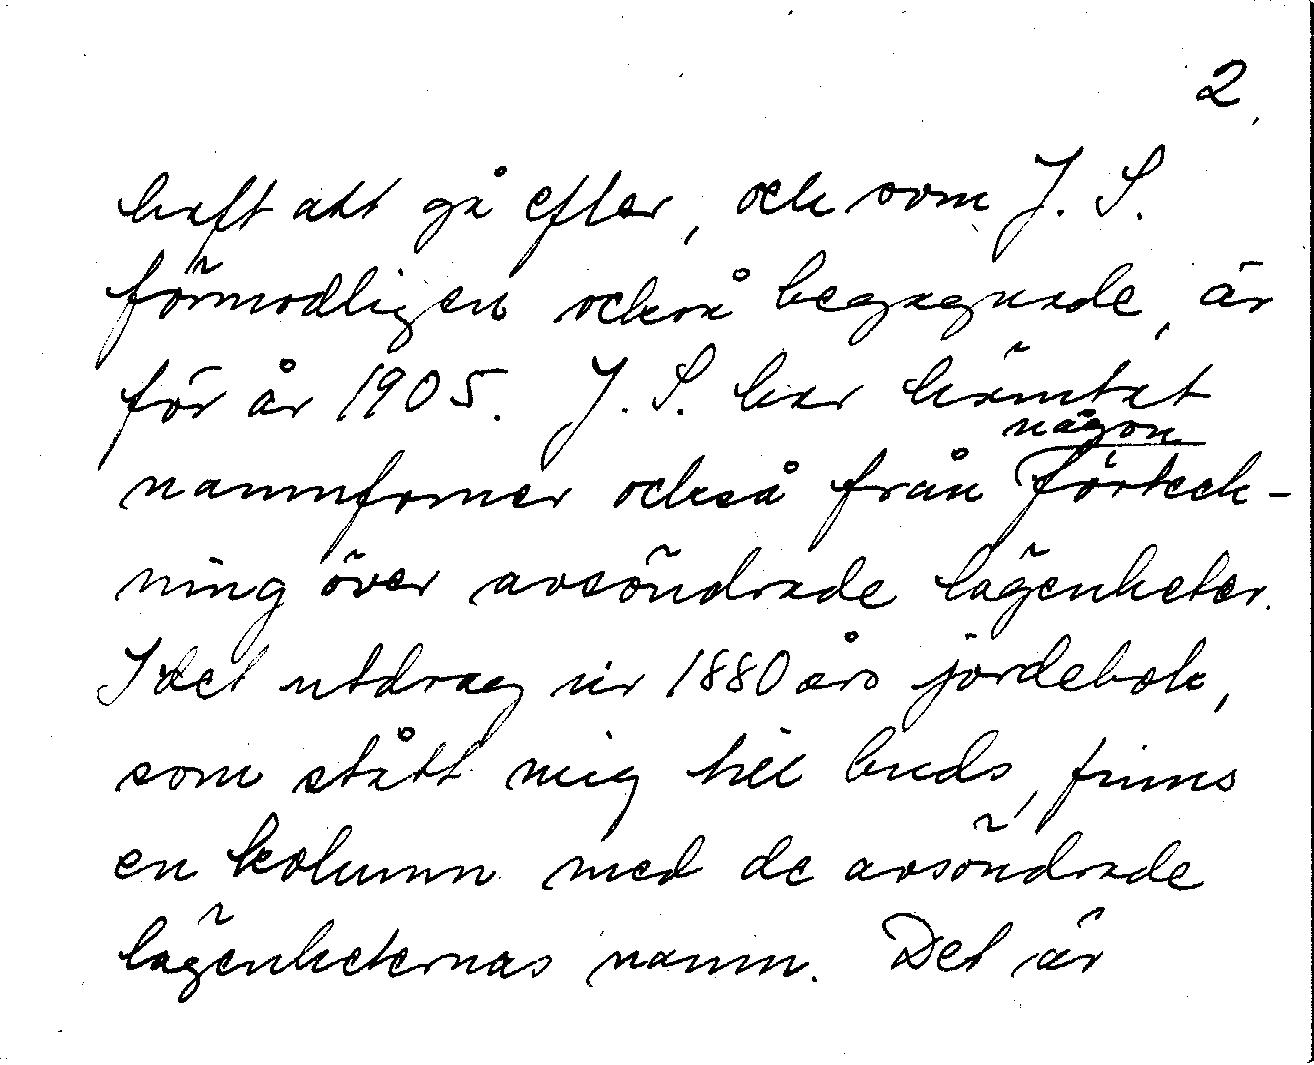 2.
haft att gå efter, och som J. S.
förmodligen också begagnade, är
för år 1905. J. S. har hämtat
någon
namnformer också från förteck-
ning över avsöndrade lägenheter.
I det utdrag ur 1880 års jordebok,
som stått mig till buds, finns
en kolumn med de avsöndrade
lägenheternas namn. Det är